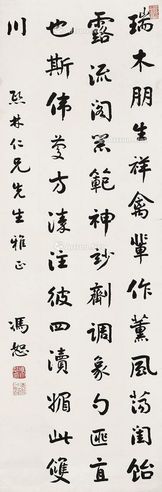 瑞木朋生祥禽輩作薰風蕩閨飴
露流閣器範神妙劑調象勺匪直
也斯偉慶方溱注彼四瀆媚此雙
川
熙林仁兄先生雅正
馮恕